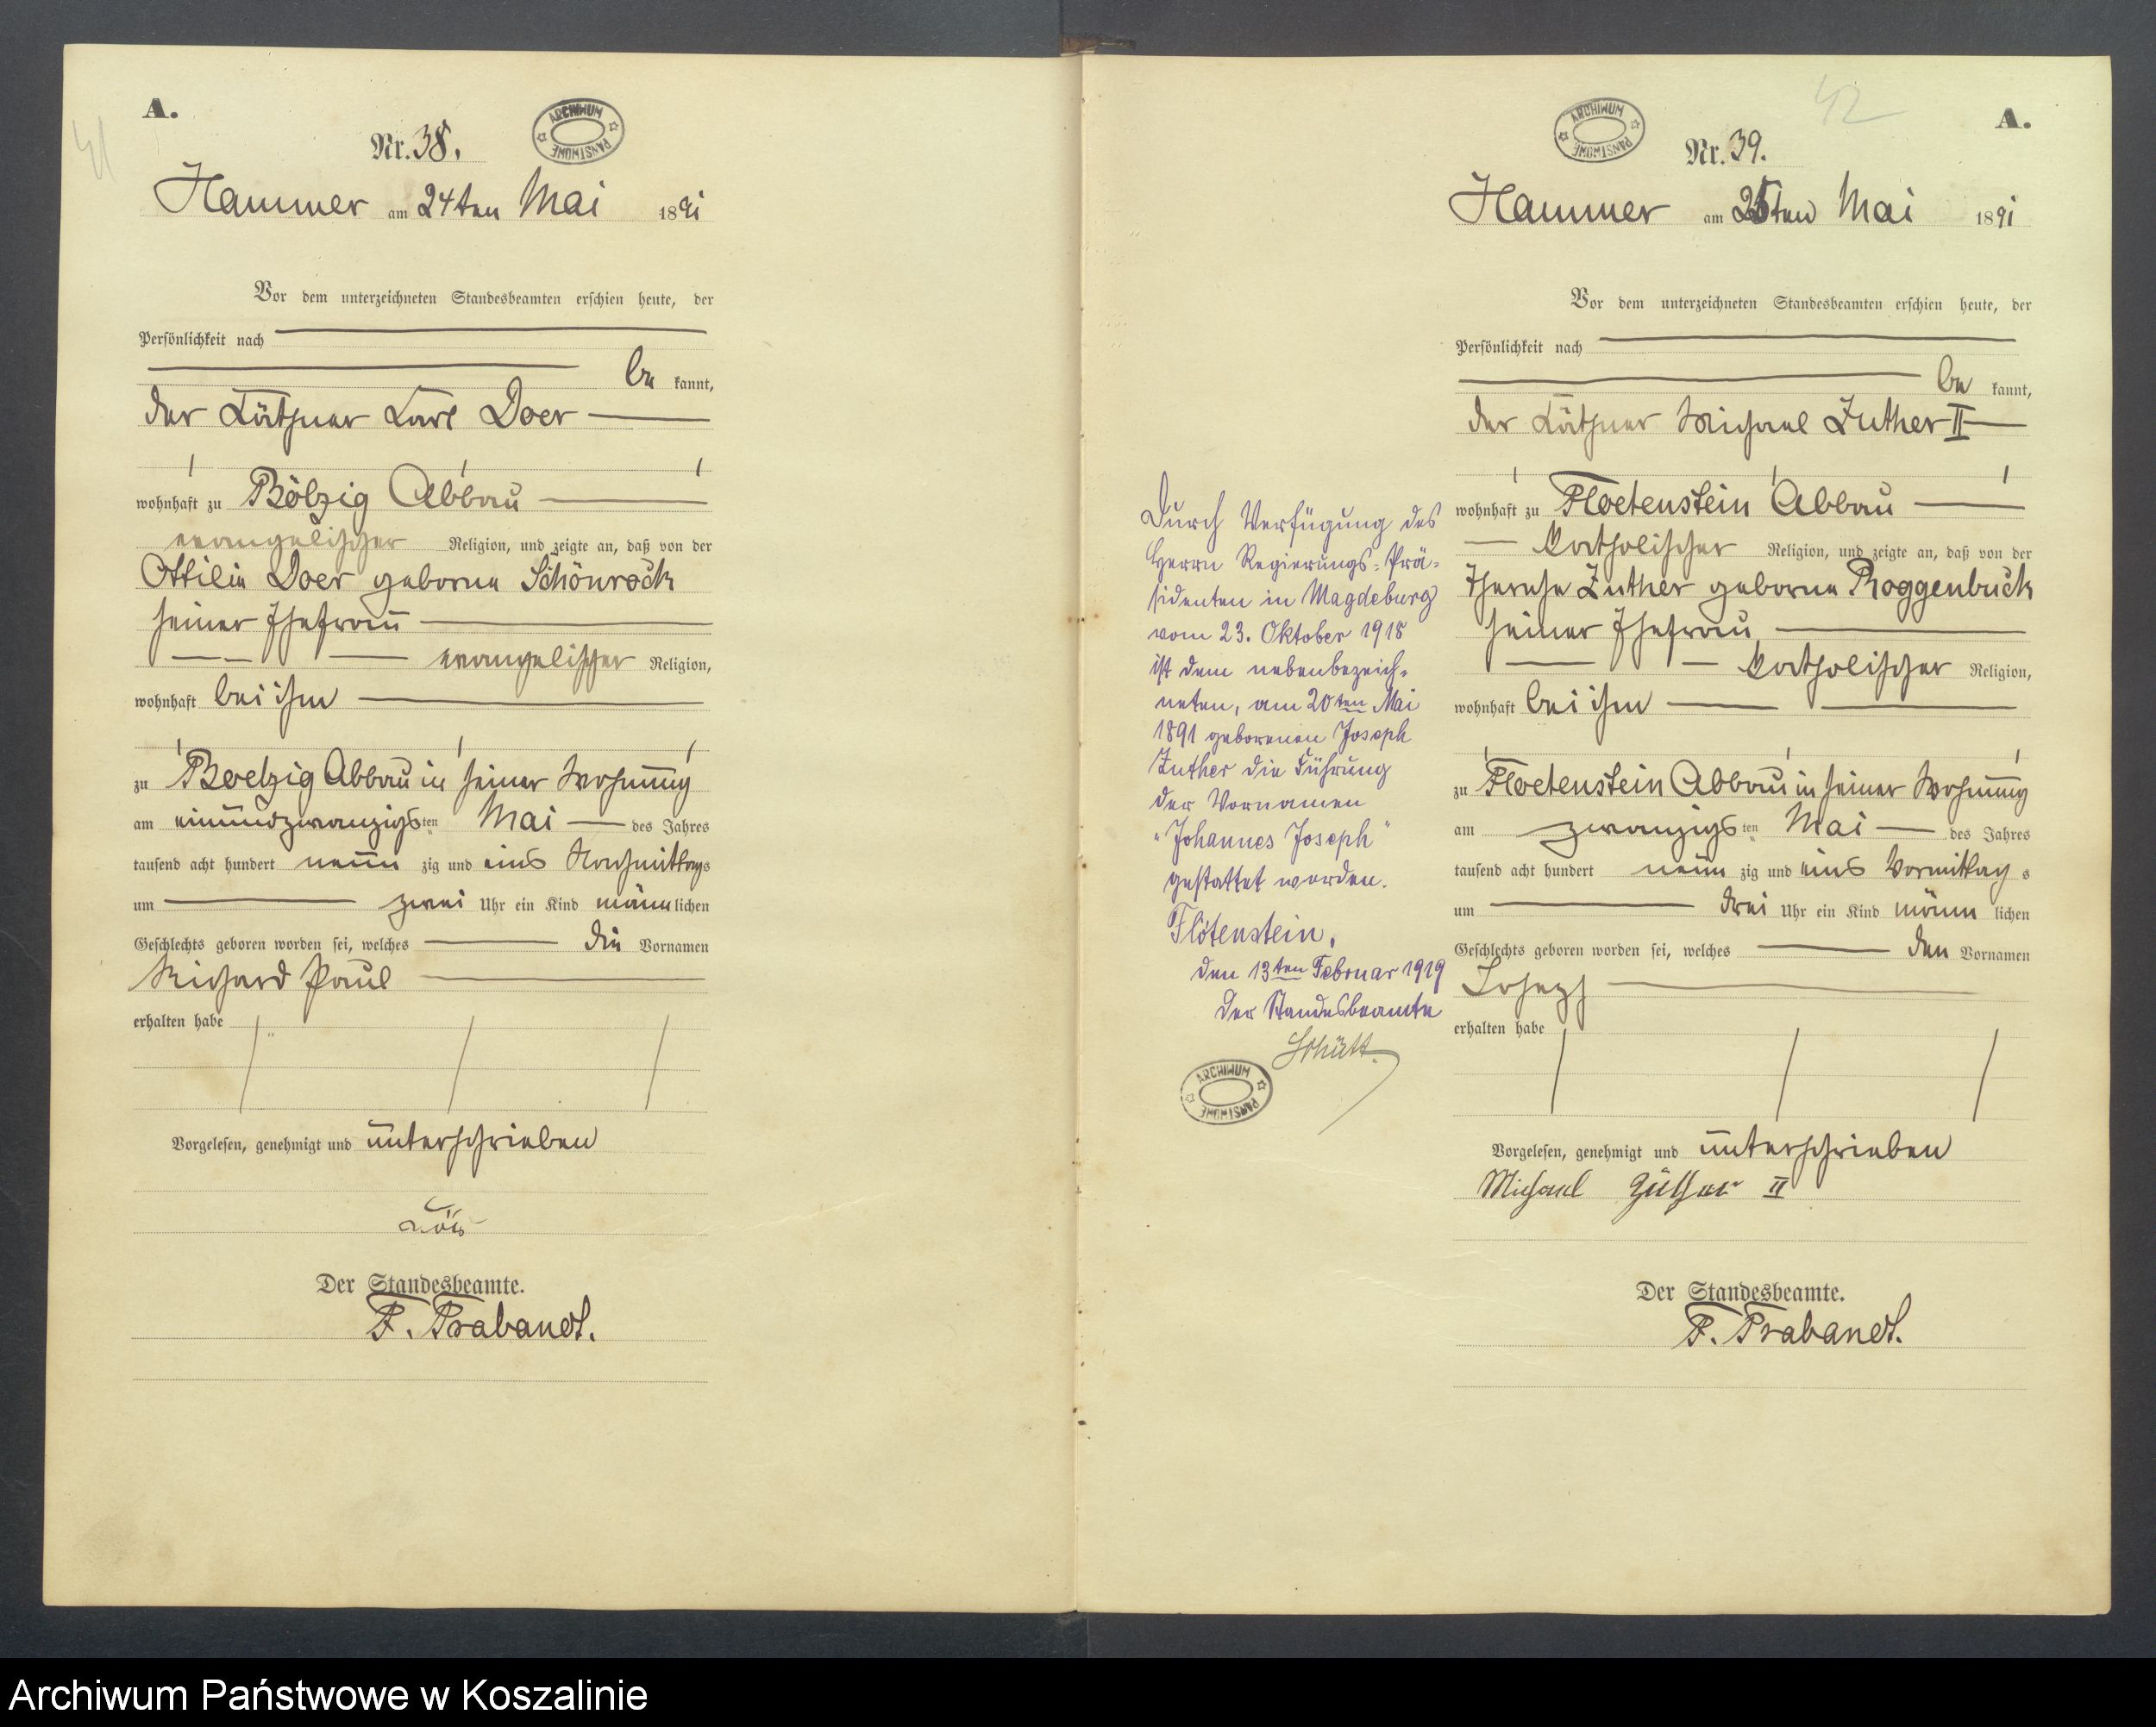 41
A.
Nr. 38.
ARCHIWUM PAŃSTWOWE
Hammer am 24ten Mai 1891
Vor dem unterzeichneten Standesbeamten erschien heute, der
Persönlichkeit nach
be kannt,
der Käthner Karl Doer
wohnhaft zu Bölzig Abbau
evangelischer Religion, und zeigte an, daß von der
Ottilie Doer geborne Schönrock
seiner Ehefrau
evangelischer Religion,
wohnhaft bei ihm
zu Boelzig Abbau in seiner Wohnung
am einundzwanzigsten Mai des Jahres
tausend acht hundert neun zig und eins Nachmittags
um zwei Uhr ein Kind männlichen
Geschlechts geboren worden sei, welches die Vornamen
Richard Paul
erhalten habe
Vorgelesen, genehmigt und unterschrieben
Der Standesbeamte.
F. Trabandt.
42
A.
ARCHIWUM PAŃSTWOWE
Nr. 39.
Hammer am 25ten Mai 1891
Vor dem unterzeichneten Standesbeamten erschien heute, der
Persönlichkeit nach
be kannt,
der Käthner Michael Zuther II
wohnhaft zu Floetenstein Abbau
katholischer Religion, und zeigte an, daß von der
Therese Zuther geborne Roggenbuck
seiner Ehefrau
katholischer Religion,
wohnhaft bei ihm
zu Floetenstein Abbau in seiner Wohnung
am zwanzigsten Mai des Jahres
tausend acht hundert neun zig und eins Vormittags
um drei Uhr ein Kind männlichen
Geschlechts geboren worden sei, welches den Vornamen
Joseph
erhalten habe
Vorgelesen, genehmigt und unterschrieben
Michael Züther II
Der Standesbeamte.
F. Trabandt.
Durch Verfügung des
Herrn Regierungs-Prä-
sidenten in Magdeburg
vom 23. Oktober 1918
ist dem nebenbezeich-
neten, am 20ten Mai
1891 geborenen Joseph
Zuther die Führung
der Vornamen
"Johannes Joseph"
gestattet worden.
Flötenstein,
den 13ten Februar 1919
Der Standesbeamte
Schütt.
ARCHIWUM PAŃSTWOWE
Archiwum Państwowe w Koszalinie